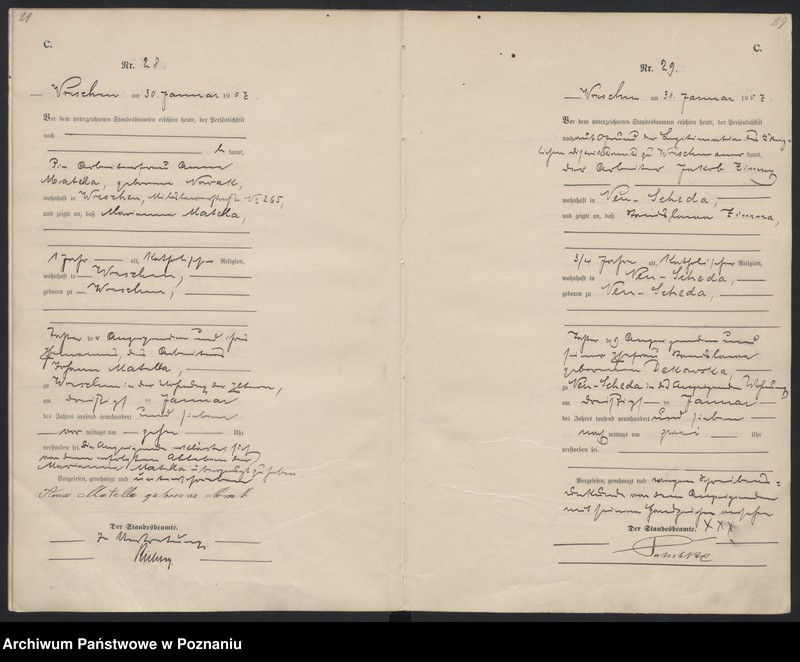 28
C.
Nr. 28
Wreschen am 30. Januar 1907.
Vor dem unterzeichneten Standesbeamten erschien heute, der Persönlichkeit
nach
kannt,
Die Arbeiterfrau Anna
Matella, geborene Nowak,
wohnhaft in Wreschen, № 265,
und zeigte an, daß Marianna Matella,
1 Jahr alt, katholischer Religion,
wohnhaft in Wreschen,
geboren zu Wreschen,
Tochter der Anzeigenden und ihres
Ehemannes, des Arbeiters
Johann Matella,
zu Wreschen in der Wohnung der Eltern,
am dreißigsten Januar
des Jahres tausend neunhundert und sieben
vor mittags um zehn Uhr
verstorben sei. Die Anzeigende erklärte, sich
von dem erfolgten Ableben der
Marianna Matella überzeugt zu haben.
Vorgelesen, genehmigt und unterschrieben
Matella geborene Nowak
Der Standesbeamte.
In Vertretung.
29
C.
Nr. 29.
Wreschen am 31. Januar 1907.
Vor dem unterzeichneten Standesbeamten erschien heute, der Persönlichkeit
nach auf Grund der Legitimation des König-
lichen Distriktsamts zu Wreschen anerkannt,
der Arbeiter Jakob Zimny
wohnhaft in Neu-Scheda,
und zeigte an, daß Stanislawa Zimna,
3/4 Jahre alt, katholischer Religion,
wohnhaft in Neu-Scheda,
geboren zu Neu-Scheda,
Tochter des Anzeigenden und
seiner Ehefrau Stanislawa
geborenen Dekowska,
zu Neu-Scheda in des Anzeigenden Wohnung
am dreißigsten Januar
des Jahres tausend neunhundert und sieben
nach mittags um zwei Uhr
verstorben sei.
Vorgelesen, genehmigt und wegen Schreibens-
unkunde von dem Anzeigenden
mit seinem Handzeichen versehen
Der Standesbeamte. XXX
Archiwum Państwowe w Poznaniu